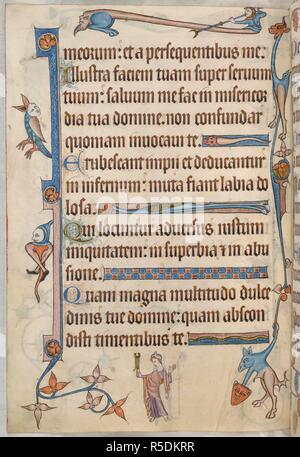 meorum: et a persequentibus me.
Illustra faciem tuam super seruum
tuum: saluum me fac in misericor
dia tua domine. non confundar
quoniam inuocaui te.
Erubescant impii et deducantur
in infernum: muta fiant labia do
losa.
Qui locuntur aduersus iustum
iniquitatem: in superbia et in abu
sione.
Quam magna multitudo dulce
dinis tue domine: quam abscon
disti timentibus te.
alamy
Image ID: R5DKRR
www.alamy.com